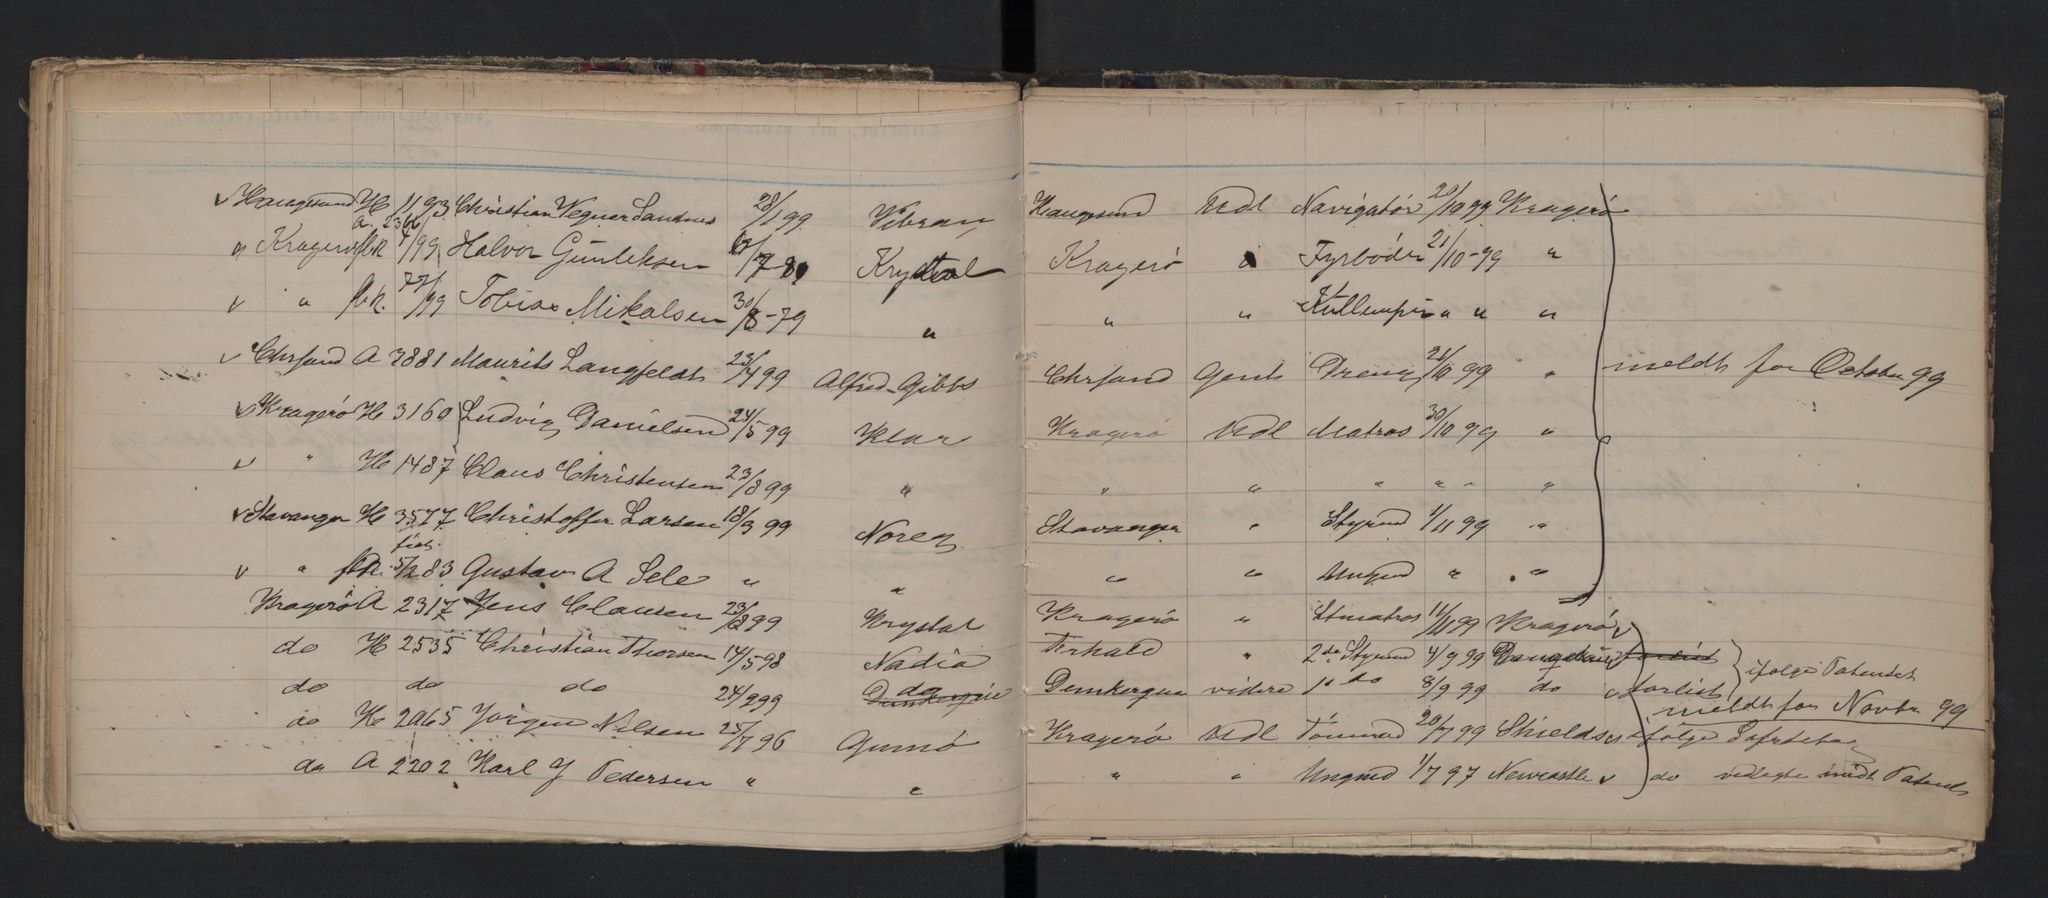 v Haugesund H 1193 Christian Wegner Sandnes 28/1 99 Vibran Haugesund Udl Navigatør 20/10 99 Kragerø
A. 2362
v Kragerø fbk 4/99 Halvor Gunleksen 6/7-81 Krystal Kragerø " Fyrbøder 21/10-99 "
v " fbk. 77/99 Tobias Mikalsen 30/8-79 " " " " " "
v Chrsand A 3881 Maurits Langfeldt 23/4 99 Alfred Gibbs Chrsand Gents Dreng 21/10 99 " meldt for October 99
v Kragerø H 3160 Ludvig Danielsen 24/5 99 Klar Kragerø Udl Matros 30/10 99 "
v " H 1487 Claus Christensen 23/8 99 " " " " " " "
v Stavanger H 3577 Christoffer Larsen 18/9 99 Noreg Stavanger " Styrmd 1/11 99 "
v " 5/2 83 Gustav A Sele " " " " Ungmd " " "
Kragerø A 2317 Jens Clausen 23/8 99 Krystal Kragerø " Stmatros 11/11 99 Kragerø v
do H 2535 Christian Thorsen 14/5 98 Nadia " 2de Styrmd 4/9 99 forlist
ifølge Patentet
do do do 24/9 99 do Dunkerque videre 1e do 8/9 99 do v forlist
meldt for Novbr 99
do H 2065 Jørgen Nilsen 25/7 96 Gunnø Kragerø Udl Tømmrmd 20/7 99 Shields v ifølge
do A 2202 Karl J Pedersen " " " " Ungmd 1/7 97 Newcastle v do vedlagte indt Patent